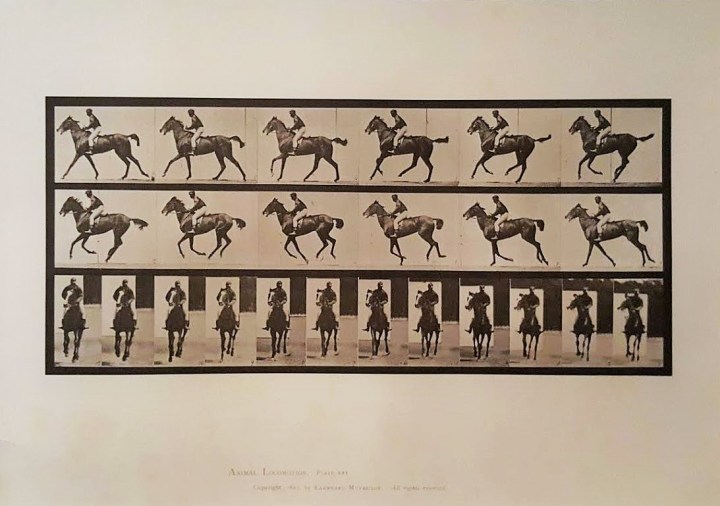 Animal Locomotion. Plate
Copyright, 1887, by Eadweard Muybridge. All rights reserved